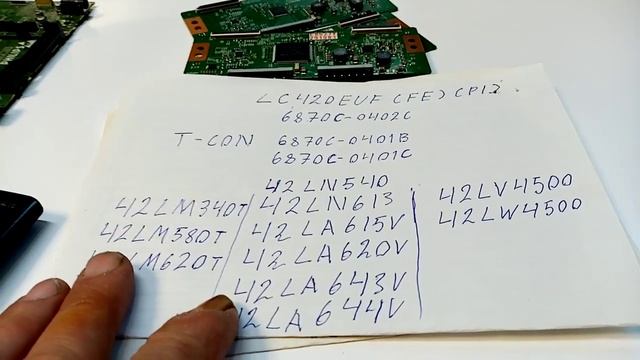 LC420EUF (FE) (P1)
6870C-0402C
T-CON 6870C-0401B
6870C-0401C
42LM340T
42LM580T
LM620T
42LN540
42LN613
42LA615V
42LA620V
42LA643V
2LA644V
42LV4500
42LW4500